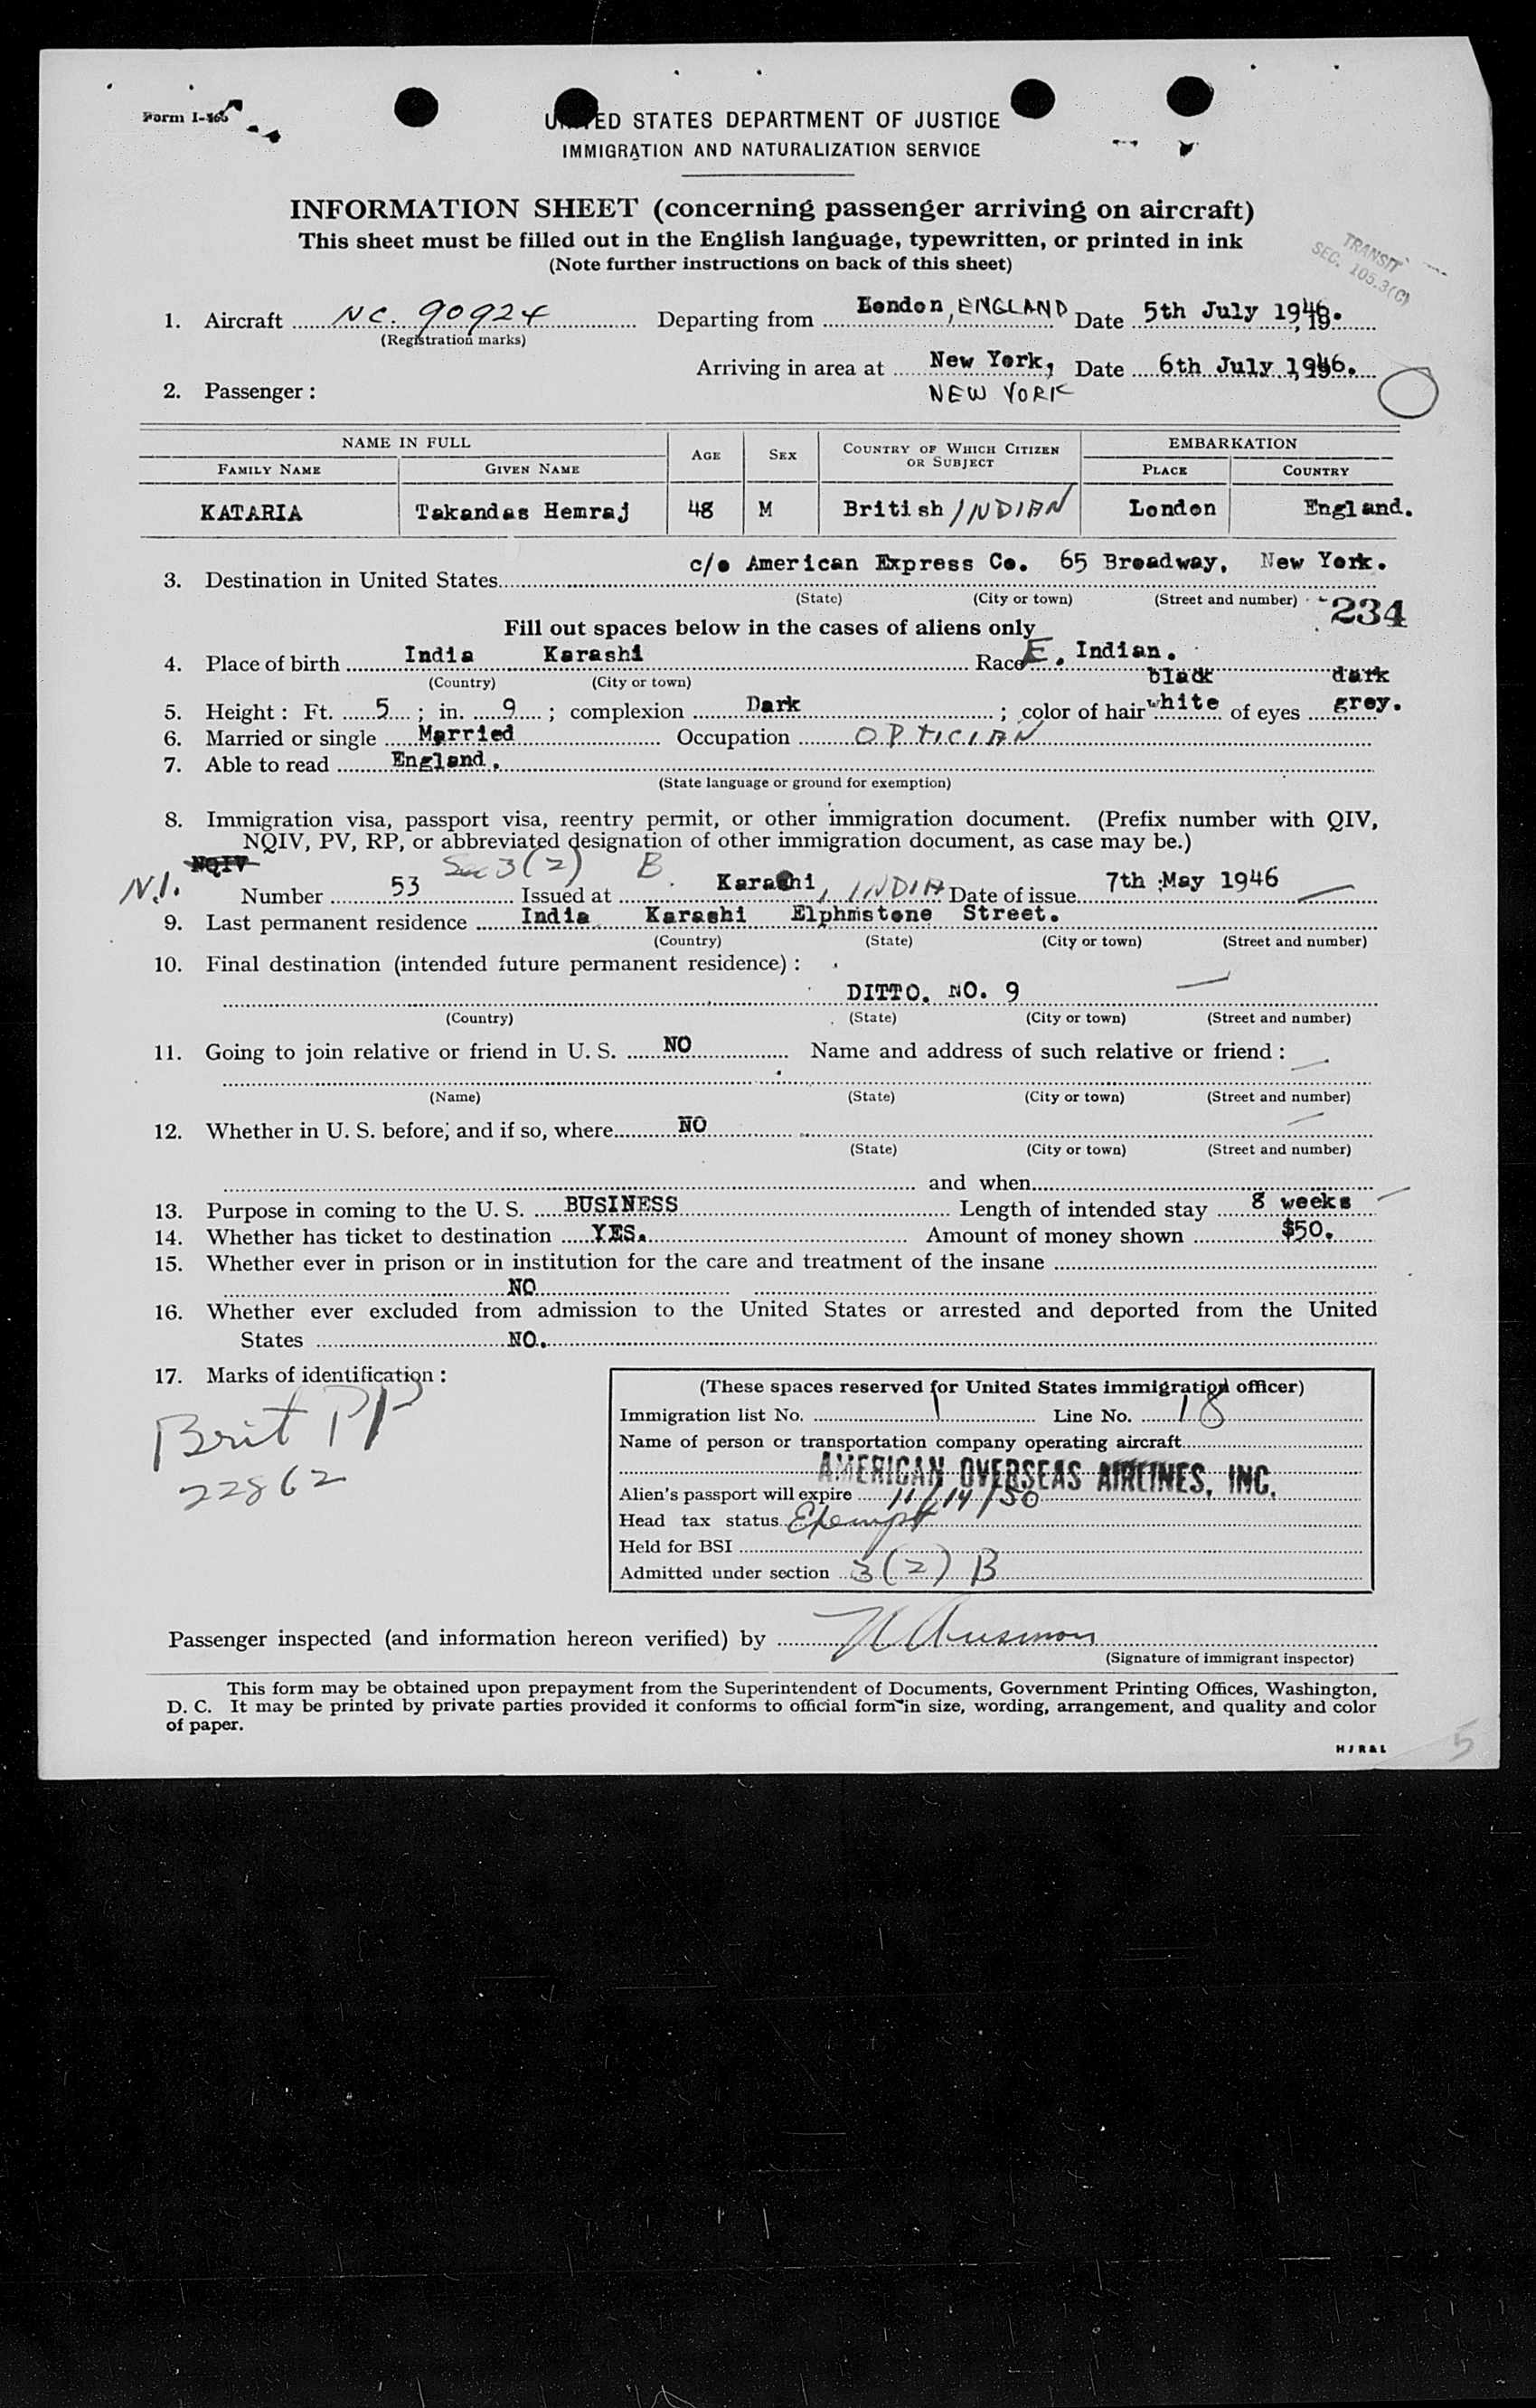 Form I-466
UNITED STATES DEPARTMENT OF JUSTICE
IMMIGRATION AND NATURALIZATION SERVICE
INFORMATION SHEET (concerning passenger arriving on aircraft)
This sheet must be filled out in the English language, typewritten, or printed in ink
(Note further instructions on back of this sheet)
TRANSIT
SEC. 105.3(C)
1. Aircraft NC. 90924 Departing from London, ENGLAND Date 5th July 1946.
(Registration marks)
Arriving in area at New York, Date 6th July 1946.
NEW YORK
2. Passenger:
NAME IN FULL AGE SEX COUNTRY OF WHICH CITIZEN OR SUBJECT EMBARKATION
FAMILY NAME GIVEN NAME PLACE COUNTRY
KATARIA Takandas Hemraj 48 M British INDIAN London England.
3. Destination in United States c/o American Express Co. 65 Broadway, New York.
(State) (City or town) (Street and number)
234
Fill out spaces below in the cases of aliens only
4. Place of birth India Karashi Race E. Indian.
(Country) (City or town)
black dark
5. Height: Ft. 5; in. 9; complexion Dark; color of hair white of eyes grey.
6. Married or single Married Occupation OPTICIAN
7. Able to read England.
(State language or ground for exemption)
8. Immigration visa, passport visa, reentry permit, or other immigration document. (Prefix number with QIV,
NQIV, PV, RP, or abbreviated designation of other immigration document, as case may be.)
NQIV Sec 3(2) B
N.I. Number 53 Issued at Karachi, INDIA Date of issue 7th May 1946
9. Last permanent residence India Karashi Elphmistone Street.
(Country) (State) (City or town) (Street and number)
10. Final destination (intended future permanent residence):
DITTO. NO. 9
(Country) (State) (City or town) (Street and number)
11. Going to join relative or friend in U. S. NO Name and address of such relative or friend:
(Name) (State) (City or town) (Street and number)
12. Whether in U. S. before; and if so, where NO
(State) (City or town) (Street and number)
and when
13. Purpose in coming to the U. S. BUSINESS Length of intended stay 8 weeks
14. Whether has ticket to destination YES. Amount of money shown $50.
15. Whether ever in prison or in institution for the care and treatment of the insane
NO
16. Whether ever excluded from admission to the United States or arrested and deported from the United
States NO.
17. Marks of identification:
Brit PP
22862
(These spaces reserved for United States immigration officer)
Immigration list No. 1 Line No. 18
Name of person or transportation company operating aircraft
AMERICAN OVERSEAS AIRLINES, INC.
Alien's passport will expire 11/14/50
Head tax status Exempt
Held for BSI
Admitted under section 3(2) B
Passenger inspected (and information hereon verified) by
(Signature of immigrant inspector)
This form may be obtained upon prepayment from the Superintendent of Documents, Government Printing Offices, Washington,
D. C. It may be printed by private parties provided it conforms to official form in size, wording, arrangement, and quality and color
of paper.
HJR&L
5